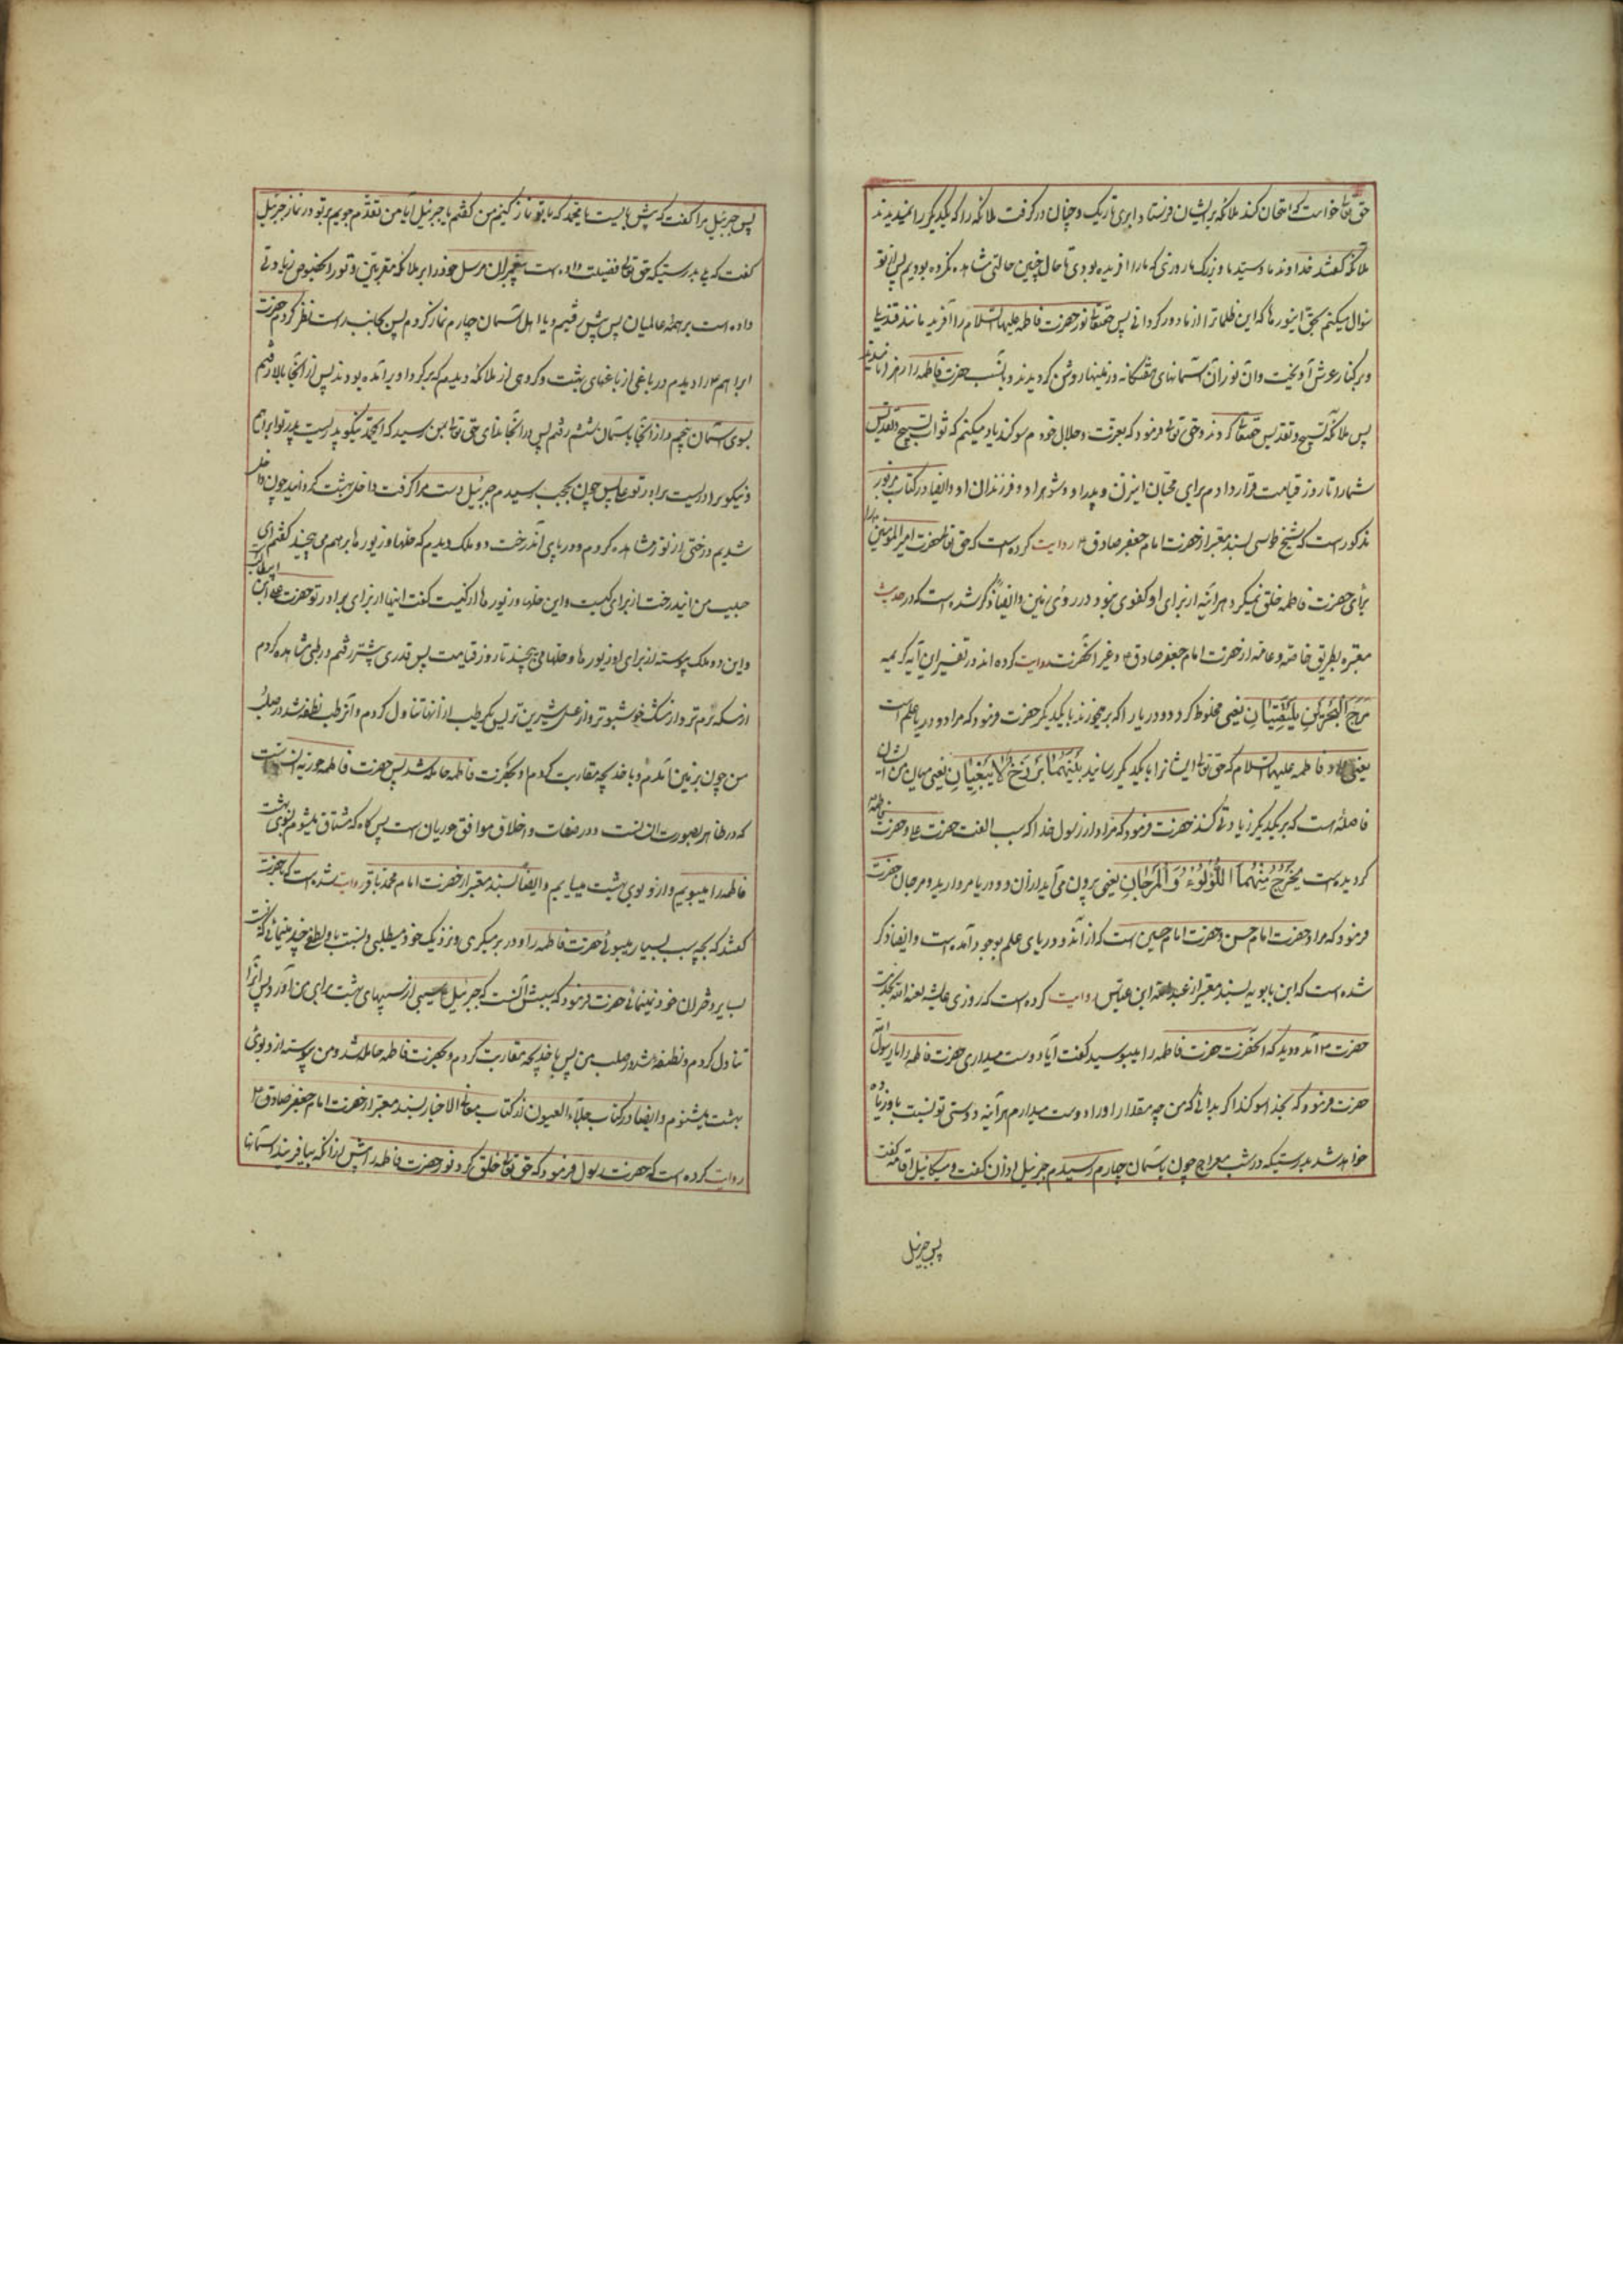 حق تعالی خواست که امتحان کند ملائکه برایشان فرستاد ابری تاریک و چنان در گرفت ملائکه را که یکدیگر را نمیدیدند
ملائکه گفتند خداوند ما و سید ما و بزرک ما روزی که ما را افریده بودی تا حال چنین حالتی مشاهده نکرده بودیم پس از تو
سوال میکنم بحق اینورها که این ظلماترا از ما دور گردانی پس حقتعالی نور حضرت فاطمه علیها السلام را آفرید مانند قندیلی
و بر کنار عرش آویخت و ان نور ان آسمانهای هفتکانه و زمینها روشن کردیدند و باین سبب حضرت فاطمه را زهرا نامیدند
پس ملائکه تسبیح و تقدیس حقتعالی کردند و حق تعالی فرمود که بعزت و جلال خودم سوکند یاد میکنم که ثواب تسبیح و تقدیس
شما را تا روز قیامت قرار دادم برای محبان اینزن و پدر او و شوهر او و فرزندان او و ایضا در کتاب مزبور
مذکور است که شیخ طوسی بسند معتبر از حضرت امام جعفر صادق ع روایت کرده است که حق تعالی حضرت امیر المومنین را
برای حضرت فاطمه خلق نمیکرد هر آینه از برای او کفوی نبود در روی زمین و ایضا ذکر شده است که در حدیث
معتبره بطریق خاصه و عامه از حضرت امام جعفر صادق ع و غیر آنحضرت روایت کرده اند در تفسیر این آیه کریمه
مَرَجَ الْبَحْرَیْنِ یَلْتَقِیَانِ یعنی مخلوط کرد دو دریا را که بر میخورند با یکدیکر حضرت فرمود که مراد دو دریا علم است
یعنی علی و فاطمه علیهما السلام که حق تعالی ایشانرا با یکدیکر رسانید بَیْنَهُمَا بَرْزَخٌ لَا یَبْغِیَانِ یعنی میان ایشان
فاصله است که بر یکدیکر زیادتی کنند حضرت فرمود که مراد از رسول خدا که سبب الفت حضرت علی و حضرت فاطمه
کردیده است یَخْرُجُ مِنْهُمَا اللُّؤْلُؤُ وَ الْمَرْجَانِ یعنی بیرون می آید از ان دو دریا مروارید و مرجان حضرت
فرمود که مراد حضرت امام حسن و حضرت امام حسین است که از آن دو دریای علم بوجود آمده است و ایضا ذکر
شده است که ابن بابویه بسند معتبر از عبد الله ابن عباس روایت کرده است که روزی عایشه لعنه الله بخدمت
حضرت ص آمد و دید که آنحضرت حضرت فاطمه را میبوسید کفت آیا دوست میداری حضرت فاطمه را یا رسول الله
حضرت فرمود که بخدا سوکند اکر بدانی که من چه مقدار او را دوست میدارم هر آینه دوستی تو نسبت باو زیاده
خواهد شد بدرستیکه در شب معراج چون باسمان چهارم رسیدم جبرئیل اذان کفت و میکائیل اقامه کفت
پس جبرئیل
پس جبرئیل مرا کفت که پیش بایست یا محمد که با تو نماز کنیم من کفتم یا جبرئیل آیا من تقدم جویم بر تو در نماز جبرئیل
کفت که بلی بدرستیکه حق تعالی فضیلت داده است پیغمبران مرسل خود را بر ملائکه مقربین و تو را بخصوص زیادتی
داده است بر همه عالمیان پس پیش رفتم و با اهل آسمان چهارم نماز کردم پس بجانب راست نظر کردم حضرت
ابراهیم ع را دیدم در باغی از باغهای بهشت و کروهی از ملائکه دیدم که بر کرد او بر آمده بودند پس از آنجا بالا رفتم
بسوی آسمان پنجم و از آنجا باسمان ششم رفتم پس در آنجا ندای حق تعالی بمن رسید که ایمحمد نیکو پدریست پدر تو ابراهیم
و نیکو برادریست برادر تو علی پس چون بحجب رسیدم جبرئیل دست مرا کرفت و داخل بهشت کردانید چون داخل
شدیم درختی از نور مشاهده کردم و در پای آندرخت دو ملک دیدم که حلها و زیورها بر هم می پیچند کفتم ای
حبیب من ایندرخت از برای کیست و این حلها و زیورها از کیست کفت اینها از برای برادر تو حضرت علی ابن ابیطالب
و این دو ملک پیوسته از برای او زیورها و حلها می پیچند تا روز قیامت پس قدری پیشتر رفتم و رطبی مشاهده کردم
از مسکه نرم تر و از مشک خوشبو تر و از عسل شیرین تر پس یک رطب از آنها تناول کردم و آنرطب نطفه شد در صلب
من چون بزمین آمدم و با خدیجه مقاربت کردم او بحضرت فاطمه حامله شد پس حضرت فاطمه حوریه انسیه است
که در ظاهر بصورت انسانست و در صفات و اخلاق موافق حوریان است پس هر کاه که مشتاق میشوم ببوی بهشت
فاطمه را میبویم و از او بوی بهشت مییابم و ایضا بسند معتبر از حضرت امام محمد باقر روایت شده است که بحضرت
کفتند که بچه سبب بسیار میبوئی حضرت فاطمه را و در بر میکیری و نزدیک خود میطلبی و نسبت باو لطفی چند مینمائی که نسبت
بسایر دختران خود نمینمائی حضرت فرمود که سببش آنست که جبرئیل سیبی از سیبهای بهشت برای من آورد پس آنرا
تناول کردم و نطفه شد در صلب من پس با خدیجه مقاربت کردم و بحضرت فاطمه حامله شد و من پیوسته از او بوی
بهشت میشنوم و ایضا در کتاب جلاء العیون از کتاب معانی الاخبار بسند معتبر از حضرت امام جعفر صادق ع
روایت کرده است که حضرت رسول فرمود که حق تعالی خلق کرد نور حضرت فاطمه را پیش از آنکه بیافریند آسمانها